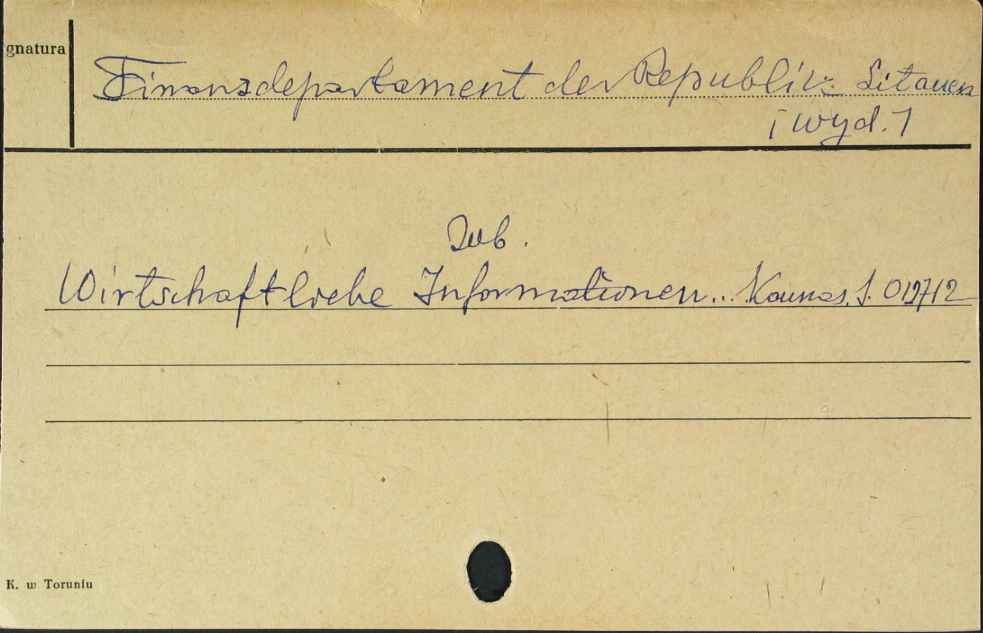 gnatura
Finansdepartament der Republik Litauen
[wyd.]
Zob.
Wirtschaftliche Informationen.. Kaunas. S. 019712
K. w Toruniu